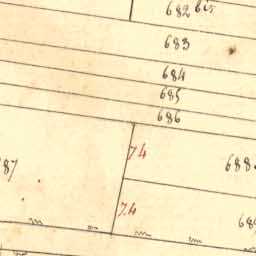 682 bis
683
684
685
686
74
688
87
74